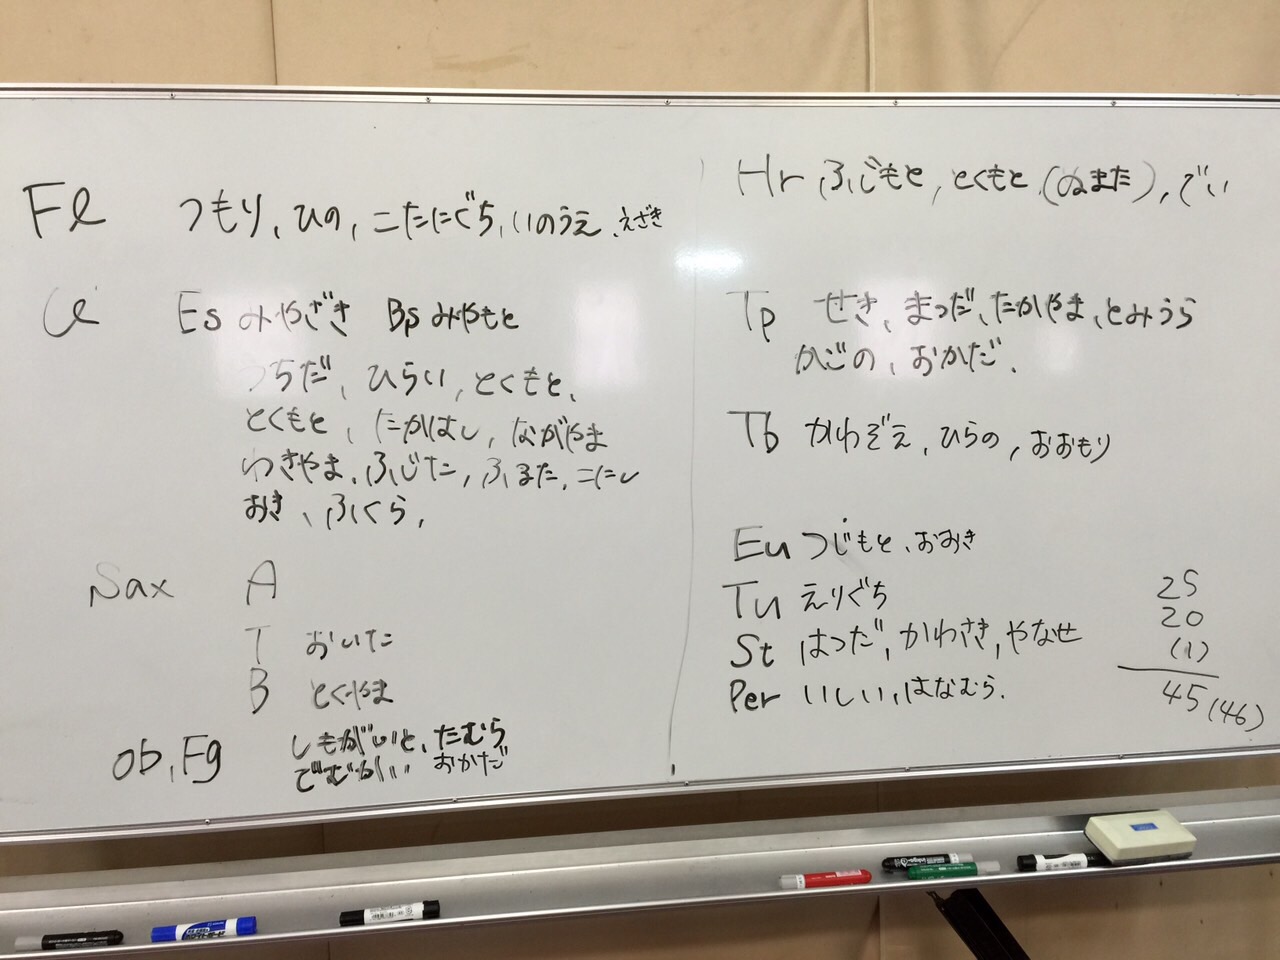 Fl つもり、ひの、こたにぐち、いのうえ、えざき
Cl Es みやざき Bs みやもと
つちだ、ひらい、とくもと、
とくもと、たかはし、ながやま
わきやま、ふじた、ふるた、こにし
おき、ふくら、
Sax A
T おいた
B とくやま
Ob, Fg しもがいと、たむら
でむかい おかだ
Hr ふじもと、とくもと、(ぬまた)、でい
Tp せき、まつだ、たかやま、とみうら
かごの、おかだ、
Tb かわぞえ、ひらの、おおもり
Eu つじもと、おおき
Tu えりぐち
St はつだ、かわさき、やなせ
Per いしい、はなむら、
25
20
(1)
45 (46)